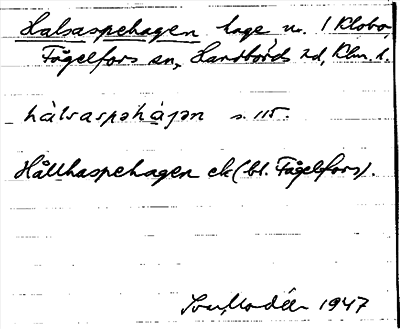 Halsaspehagen hage n. 1 Klobo,
Fågelfors sn, Handbörds hd, Klm. l.
hàlsaspəhàgən s. 115.
Hållhaspehagen ek (bl. Fågelfors).
Ivar Modéer 1947